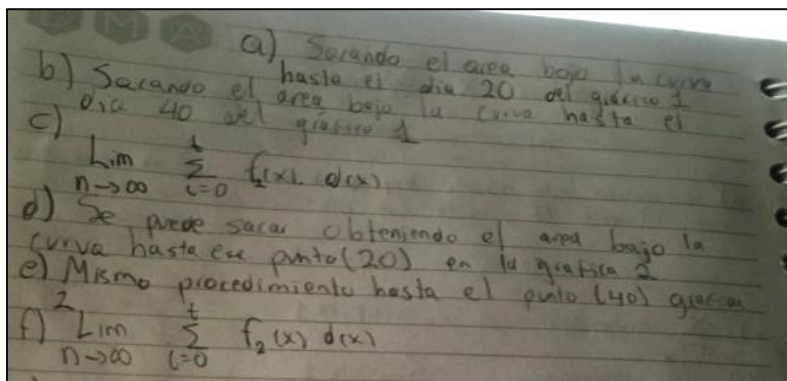 a) Sacando el area bajo la curva
hasta el dia 20 del gráfico 1
b) Sacando el área bajo la curva hasta el
dia 40 del gráfico 1
c)
Lim t
n→∞ Σ f₁(x) d(x)
i=0
d) Se puede sacar obteniendo el area bajo la
curva hasta ese punto (20) en la grafica 2
e) Mismo procedimiento hasta el punto (40) grafica
2
f) Lim t
n→∞ Σ f₂(x) d(x)
i=0